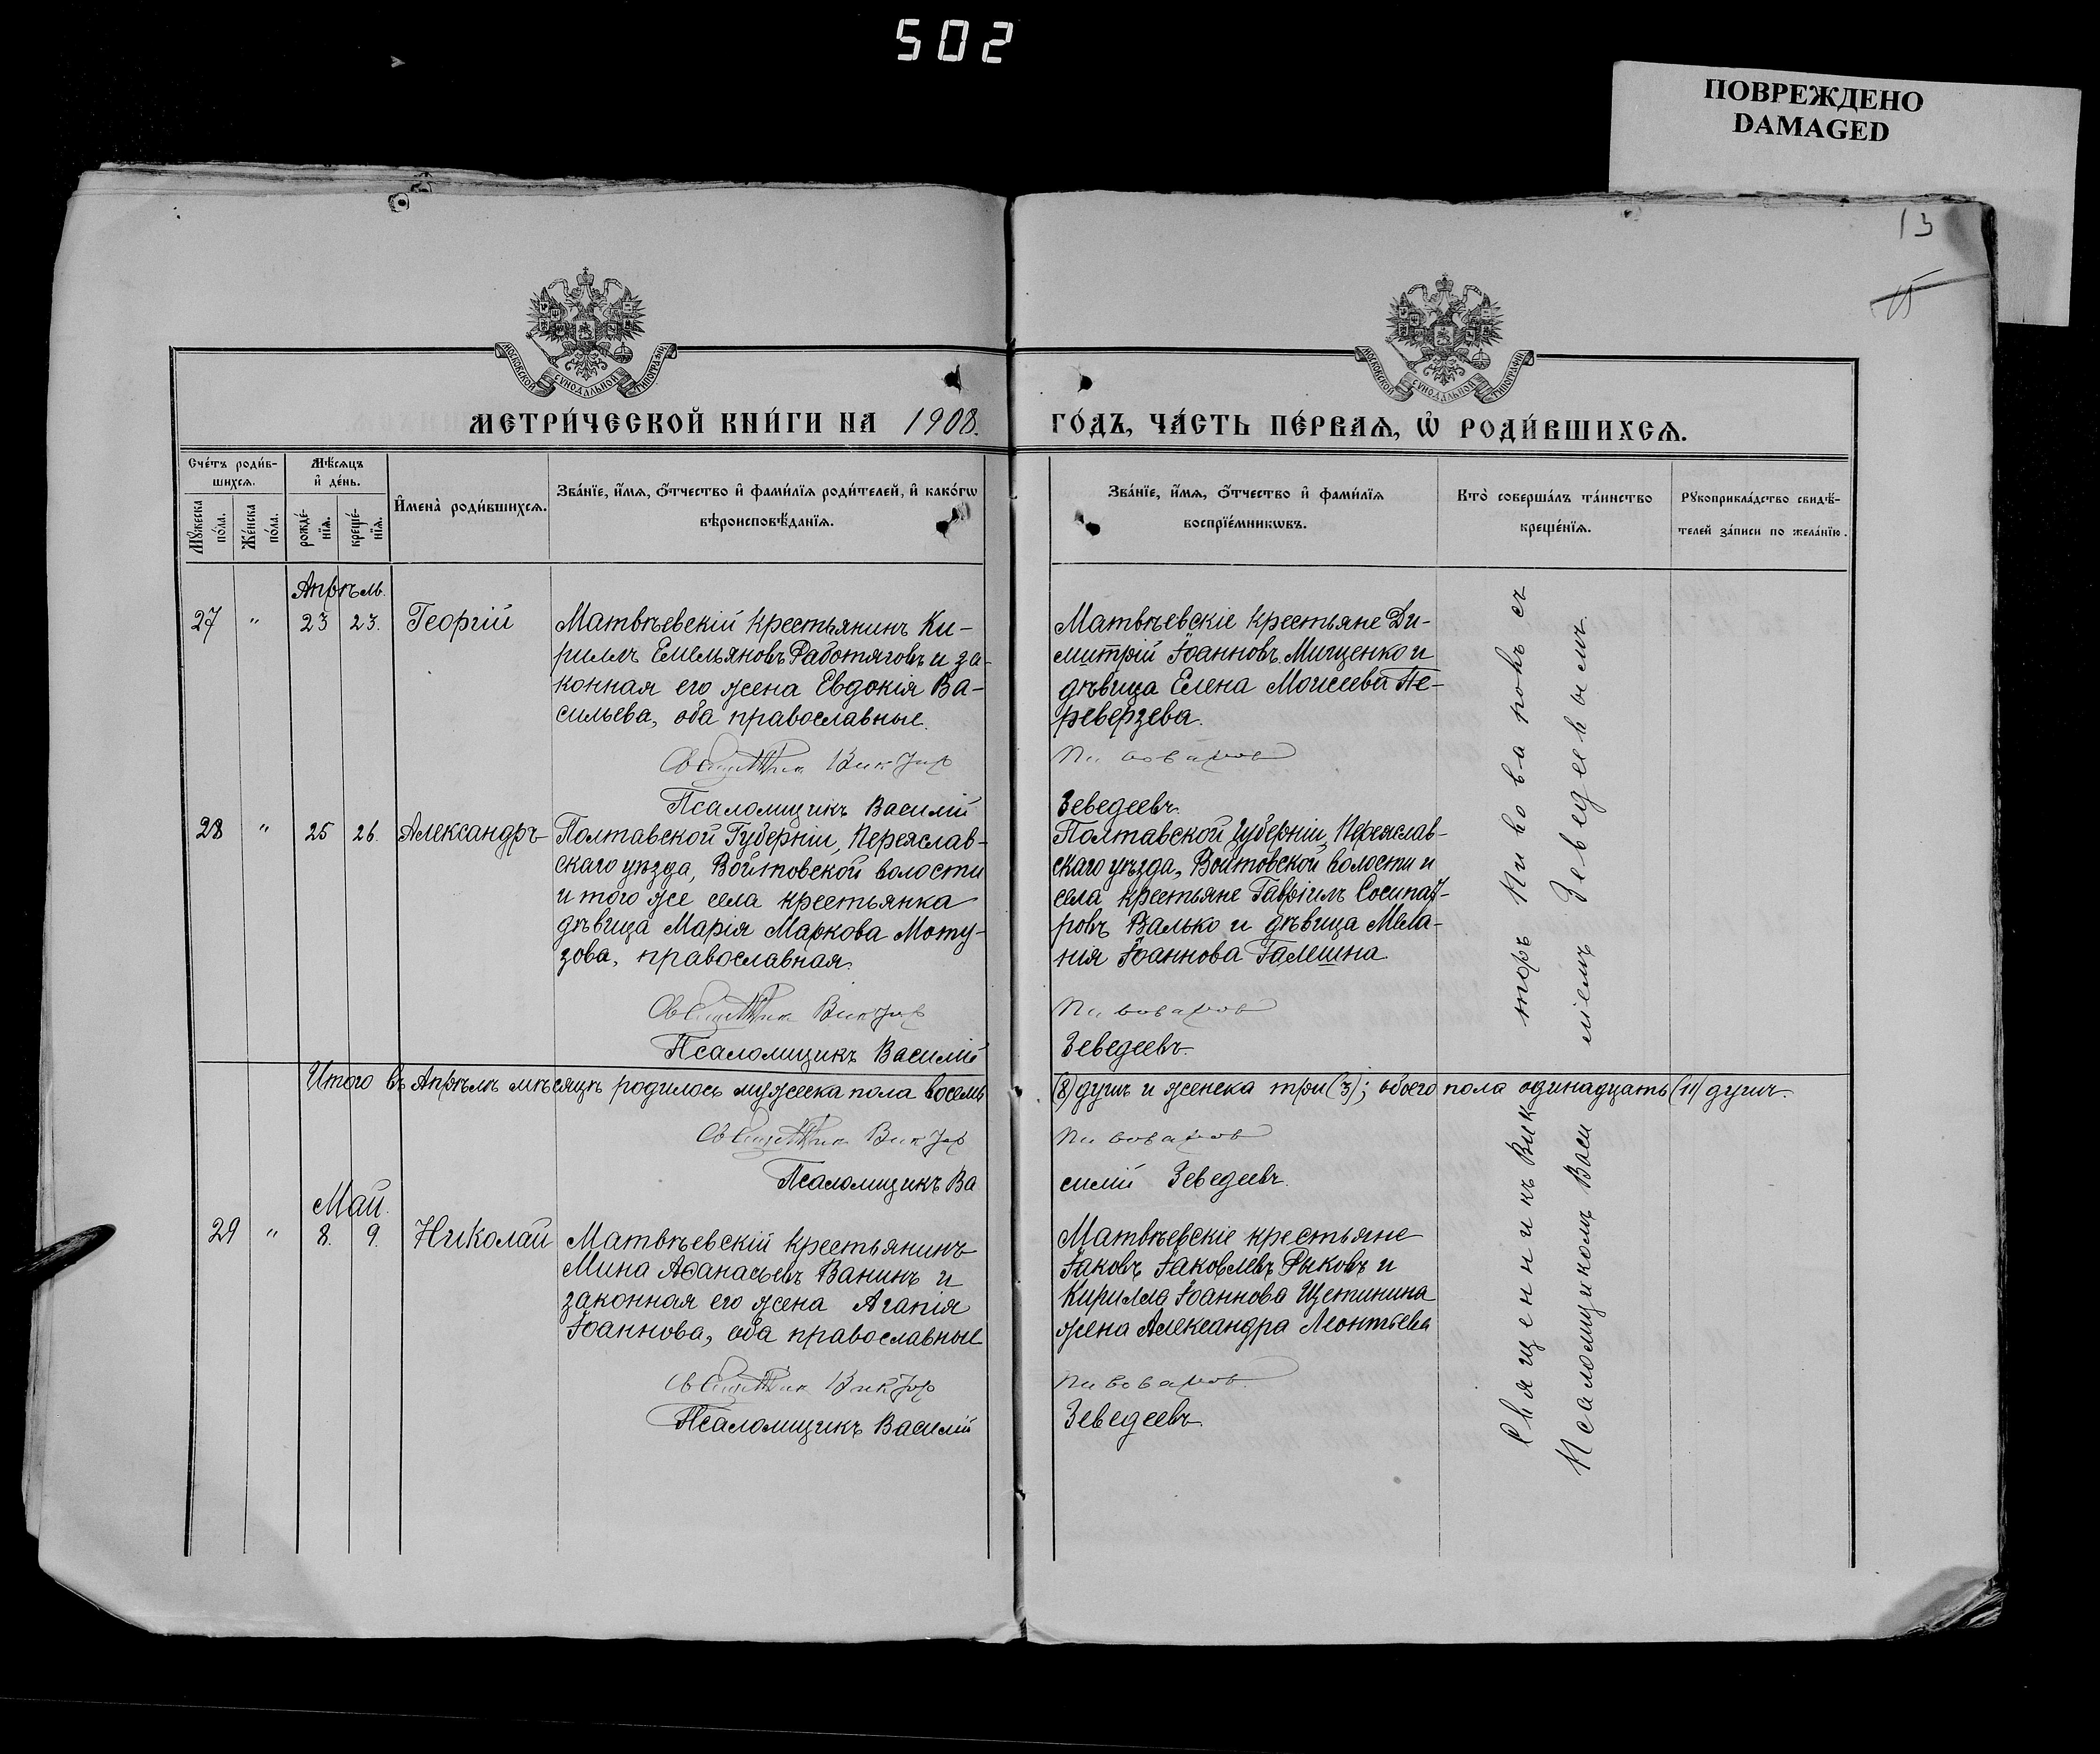 502
ПОВРЕЖДЕНО
DAMAGED
13
МОСКОВСКОЙ СѴНОДАЛЬНОЙ ТИПОГРАФІИ
МОСКОВСКОЙ СѴНОДАЛЬНОЙ ТИПОГРАФІИ
МЕТРИ́ЧЕСКОЙ КНИ́ГИ НА 1908.
ГО́ДЪ, ЧА́СТЬ ПЕ́РВАѦ, Ѡ҆ РОДИ́ВШИХСѦ.
Сче́тъ роди́в-
шихсѧ.
Мꙋжеска по́ла.
Же́нска по́ла.
Мѣ́сѧцъ
и҆ де́нь.
рожде́-
нїѧ.
креще́-
нїѧ.
И҆мена̀ роди́вшихсѧ.
Зва́нїе, и҆́мѧ, ѻ҆́тчество и҆ фами́лїѧ роди́телей, и҆ како́гѡ
вѣроисповѣ́данїѧ.
Зва́нїе, и҆́мѧ, ѻ҆́тчество и҆ фами́лїѧ
воспрїе́мникѡвъ.
Кто̀ соверша́лъ та́инство
креще́нїѧ.
Рꙋкоприкла́дство свидѣ́-
телей за́писи по жела́нїю.
Апрѣль.
27 " 23 23. Георгій
Матвѣевскій крестьянинъ Ки-
риллъ Емельяновъ Работяговъ и за-
конная его жена Евдокія Ва-
сильева, оба православные.
Священник Виктор
Псаломщикъ Василій
Матвѣевскіе крестьяне Ди-
митрій Іоанновъ Мищенко и
дѣвица Елена Моисеева Пе-
реверзева.
Пивоваров
Зеведеевъ.
28 " 25 26. Александръ
Полтавской Губерніи, Переяслав-
скаго уѣзда, Войтовской волости
и того же села крестьянка
дѣвица Марія Маркова Моту-
зова, православная.
Священник Виктор
Псаломщикъ Василій
Полтавской губерніи, Переяслав-
скаго уѣзда, Войтовской волости и
села крестьяне Гавріилъ Сосипат-
ровъ Валько и дѣвица Мела-
нія Іоаннова Галешна
Пивоваров
Зеведеевъ.
Итого въ Апрѣлѣ мѣсяцѣ родилось мужеска пола восемь (8) душъ и женска три (3); обоего пола одинадцать (11) душъ.
Священник Виктор Пивоваров
Псаломщикъ Василій Зеведеевъ.
Май.
29 " 8. 9. Николай
Матвѣевскій крестьянинъ
Мина Аѳанасьевъ Ванинъ и
законная его жена Агапія
Іоаннова, оба православные
Священник Виктор
Псаломщикъ Василій
Матвѣевскіе крестьяне
Іаковъ Іаковлевъ Рыковъ и
Кирилла Іоаннова Щетинина
жена Александра Леонтьева
Пивоваров.
Зеведеевъ.
Священникъ Викторъ Пивоваровъ съ
Псаломщикомъ Василіемъ Зеведеевымъ.